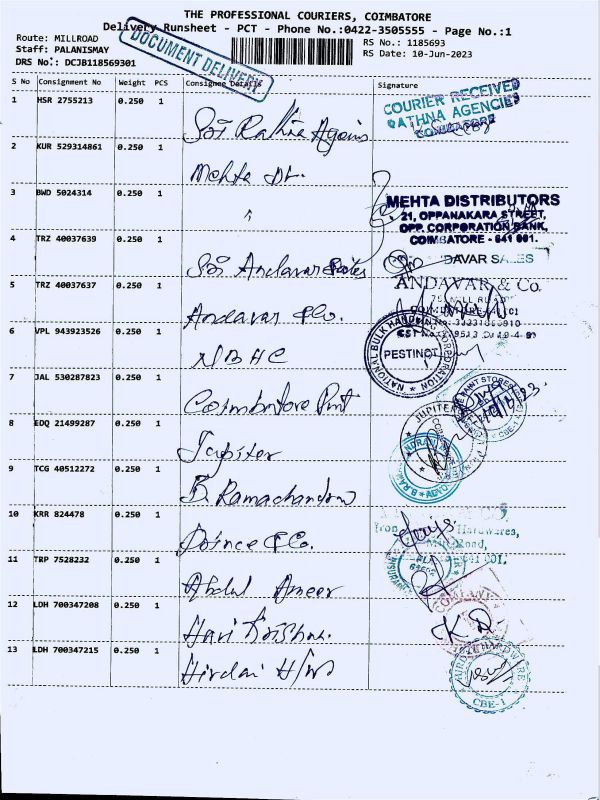 THE PROFESSIONAL COURIERS, COIMBATORE
Delivery Runsheet - PCT - Phone No.:0422-3505555 - Page No.:1
Route: MILLROAD
Staff: PALANISMAY
DRS No: DCJB118569301
DOCUMENT DELIVERY
RS No.: 1185693
RS Date: 10-Jun-2023
S No Consignment No Weight PCS Consignee Details Signature
1 HSR 2755213 0.250 1
COURIER RECEIVED
RATHNA AGENCIES
COIMBATORE
2 KUR 529314861 0.250 1 Mehta Dt.
3 BWD 5024314 0.250 1 "
MEHTA DISTRIBUTORS
21, OPPANAKARA STREET,
OPP. CORPORATION BANK,
COIMBATORE - 641 001.
4 TRZ 40037639 0.250 1 Sri Andavar Sales
DAVAR SALES
5 TRZ 40037637 0.250 1 Andavar & Co.
ANDAVAR & Co.
6 VPL 943923526 0.250 1 NBHC
NATIONAL BULK HANDLING CORPORATION
PESTINCT
7 JAL 530287823 0.250 1 Coimbatore Paint
PAINT STORES
CBE-1
8 EDQ 21499287 0.250 1 Jupiter
JUPITER
9 TCG 40512272 0.250 1 B. Ramachandra
10 KRR 824478 0.250 1 Prince & Co.
Iron Hardwares,
Road,
641 001.
11 TRP 7528232 0.250 1 Abdul Ameer
12 LDH 700347208 0.250 1 Hari Krishna
13 LDH 700347215 0.250 1 Hirdai H/W
HARDWARE
CBE-1